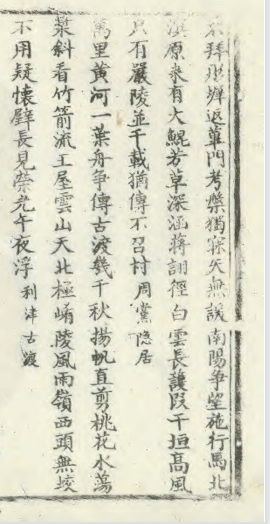 不拜彤墀返蓽門考槃獨寐矢無諼南陽爭望施行馬北
溟原来有大鯤芳草深涵蔣詡徑白雲長護段干垣高風
只有嚴陵並千載猶傳不召村 周黨隱居
萬里黃河一葉舟爭傳古渡幾千秋揚帆直剪桃花水蕩
槳斜看竹箭流王屋雲山天北極崤陵風雨嶺西頭無
不用疑懷璧長見榮光午夜浮 利津古渡